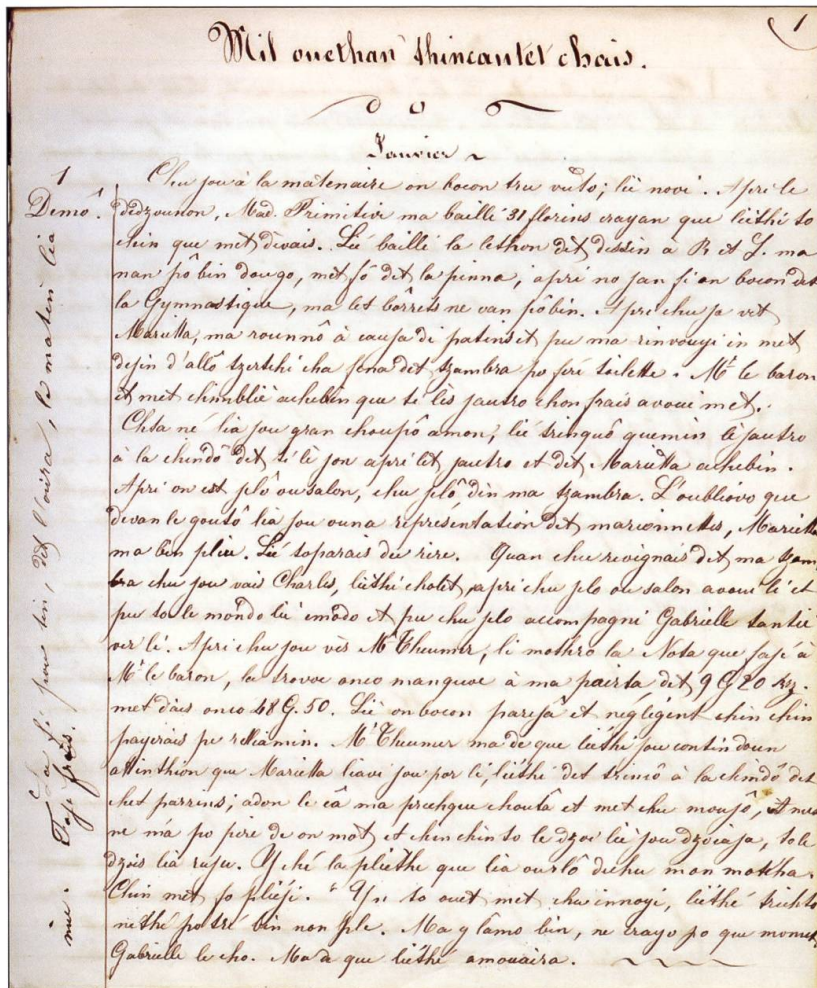 1
Mil ouethan thincantet chais.
Janvier
1
Demô.
Chu jou à la matenaire on bocon tru vuto; lié nové. Apri le
dédzounon, Mad. Primitive ma baillé 31 florins crayan que liéthi to
chin que met devais. Lié baillé la lethon det dessin à R et J. ma
nan pô bin dougo, met fô det la pinna, apri no jan fi on bocon det
la Gymnastique, ma let bôrrets ne van pô bin. Apri chu ja vet
Marietta, ma rounnô à cauja di patins et pu ma rinvouyi in met
dejin d'allô tzertchi cha fena det tzambra po fré toilette. Mr le baron
et met chinnblié achebin que té lis jautro chon frais avoui met.
Chta né lia jou gran choupô amon; lié trinquô quemin lé jautro
à la chindô det ti lè jon apri let jautro et det Marietta achebin.
Apri on est plô ou salon, chu plô din ma tzambra. L'oubliôvo que
devan le goutô lia jou ouna représentation det marionnettes, Marietta
ma bin pliu. Lié toparais du rire. Quan chu revignais det ma tzam
bra chu jou vais Charles, liéthi cholet, apri chu plo ou salon avoui lé et
pu to le mondo lié emodo et pu chu plo accompagni Gabrielle tantié
ver lé. Apri chu jou vèr Mr Theumer, li mothro la Nota que jajé à
Mr le baron, la trovve anco manquve à ma pairta det 9 G 20 kz.
met dais anco 48 G. 50. Lié on bocon parejâ et négligent chin chin
payerais pe relliamin. Mr Theumer ma de que liéthi jou contin doun
attinthion que Marietta liavi jou por lé, liéthi det trincô à la chindô det
chet parrins; adon le câ ma prechque choutâ et met chu moujô,
ne ma po pire de on mot et chin chin to le dzoi lié jou dzoiaja, to le
dzois lia ruju. Y ché la pliéthe que lia ourlô duchu mon motcha.
Chin met fo pliéji. Yn to ouet met chu innoyi, liéthé trichto
nethé po tré bin non ple. Ma y lâmo bin, ne crayo po que
Gabrielle le cho. Ma de que liéthé amouaira.
nue. Fajé frais. La fi prou bin, det l'oûra, le maten lia